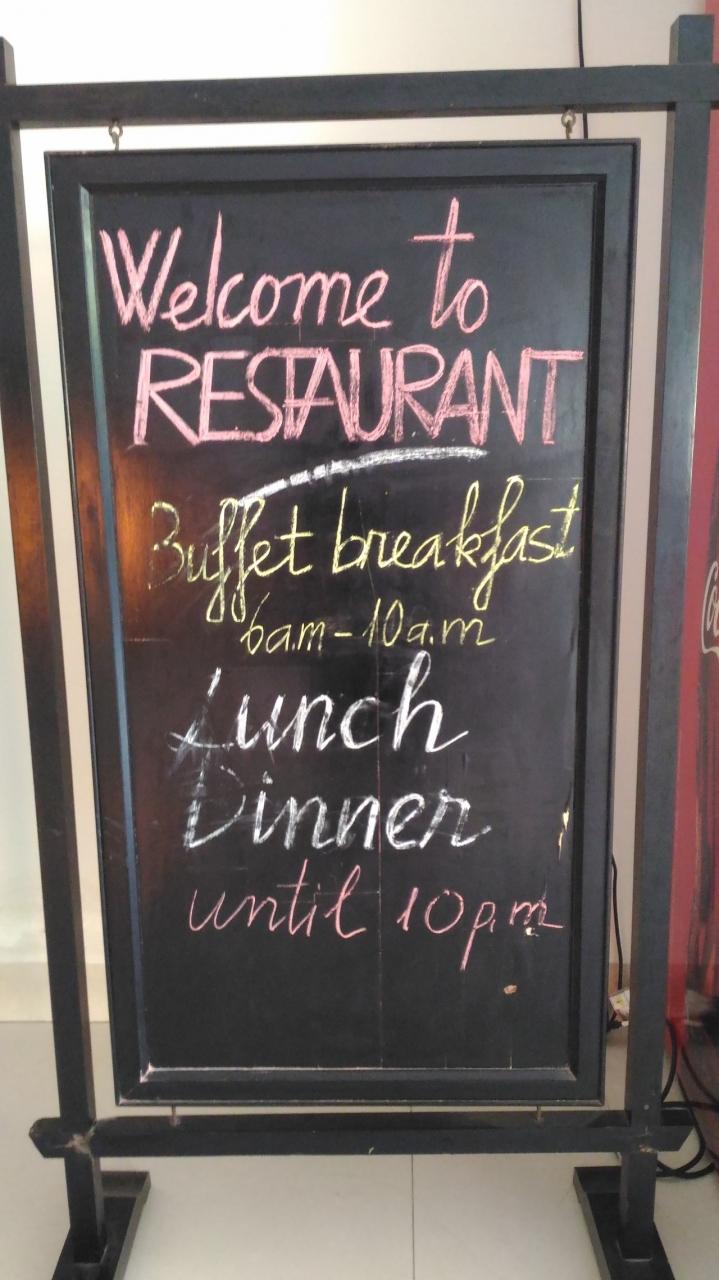 Welcome to
RESTAURANT
Buffet breakfast
6a.m - 10a.m
Lunch
Dinner
until 10p.m